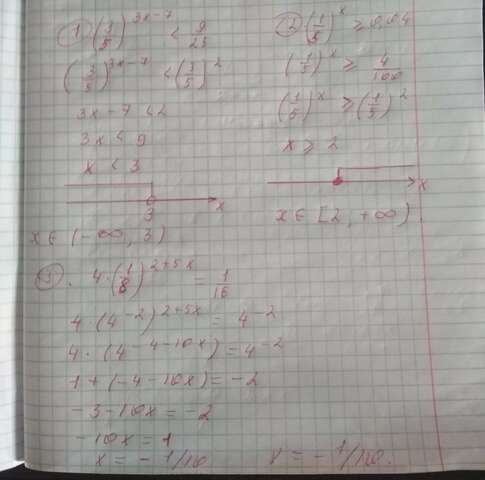 ① (3/5)^(3x-7) < 9/25
(3/5)^(3x-7) < (3/5)^2
3x-7<2
3x < 9
x < 3
3 x
x ∈ (-∞, 3)
② (1/5)^x ≥ 0,04
(1/5)^x ≥ 4/100
(1/5)^x ≥ (1/5)^2
x ≥ 2
x
x ∈ [2, +∞)
③. 4·(1/8)^(2+5x) = 1/16
4·(4^-2)^(2+5x) = 4^-2
4·(4^(-4-10x)) = 4^-2
1+(-4-10x) = -2
-3-10x = -2
-10x = 1
x = -1/10 x = -1/10.